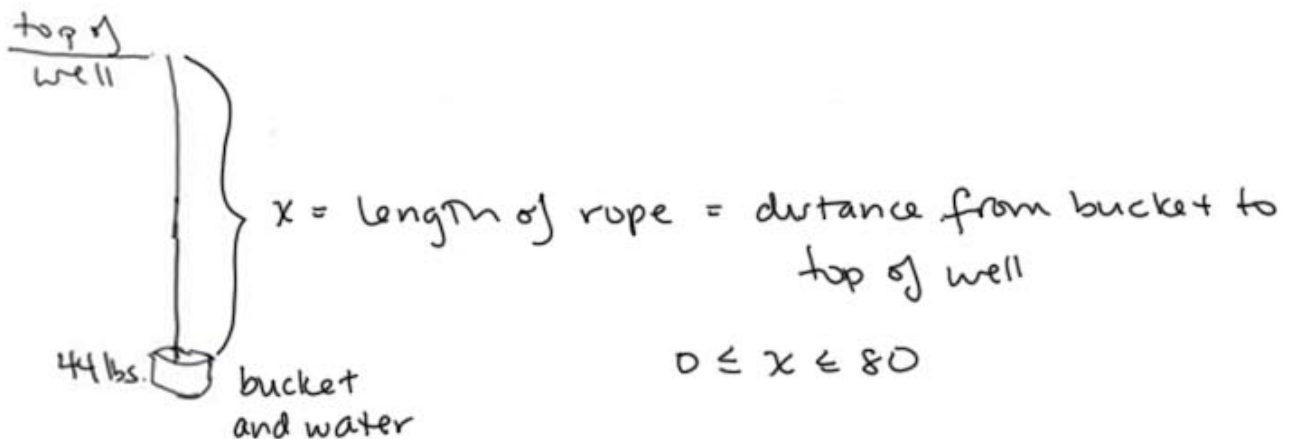 top of
well
x = length of rope = distance from bucket to
top of well
44 lbs.
bucket
and water
0 ≤ x ≤ 80